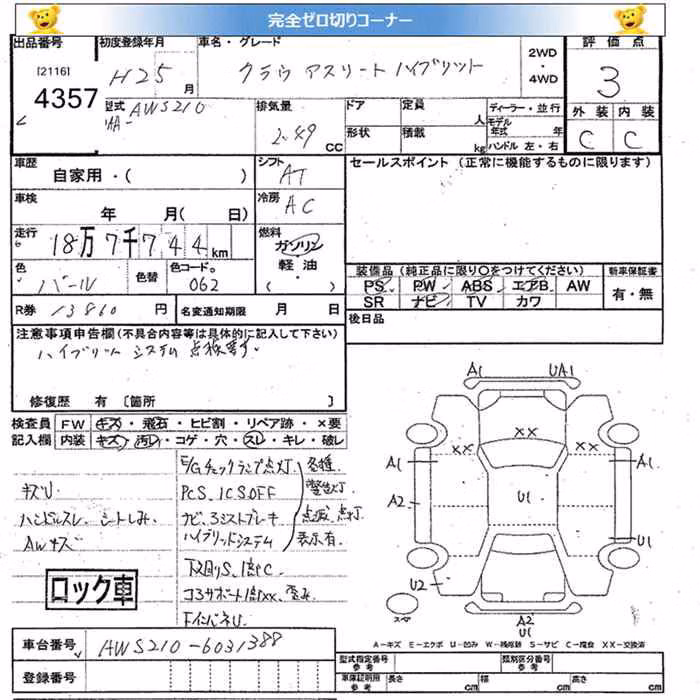 完全ゼロ切りコーナー
出品番号 初度登録年月 車名・グレード 2WD・4WD 評価点
[2116] H25 月 クラウン アスリート ハイブリット 3
4357
型式 AWS210 排気量 2.49 CC ドア 定員 人 ディーラー・並行 外装 内装
形状 積載 kg モデル年式 年 ハンドル 左・右 C C
車歴 自家用・( ) シフト AT セールスポイント (正常に機能するものに限ります)
車検 年 月( 日) 冷房 AC
走行 18万7千744km 燃料 ガソリン 軽油
色 パール 色替 色コード 062 装備品(純正品に限り○をつけてください) 新車保証書
PS PW ABS エアB AW 有・無
SR ナビ TV カワ
R券 13860 円 名変通知期限 月 日 後日品
注意事項申告欄(不具合内容等は具体的に記入して下さい)
ハイブリット システム 点検
修復歴 有 〔箇所 〕
検査員 FW キズ・飛石・ヒビ割・リペア跡・×要
記入欄 内装 キズ・汚レ・コゲ・穴・スレ・キレ・破レ
E/Gチェックランプ点灯
PCS、ICSOFF
ハイブリッドシステム
各種
警告灯
点滅、点灯
表示有
キズU
ハンドルスレ、シートしみ、
AWキズ
ロック車
A1 UA1
XX
A1 XX XX A1
A2 U1
U1
U2
スペア
A2
U1
A-キズ E-エクボ U-凹み W-補修跡 S-サビ C-腐食 XX-交換済
車台番号 AWS210-6031388
登録番号
型式指定番号 参考 類別区分番号 参考
車庫証明用 参考 長さ cm 幅 cm 高さ cm